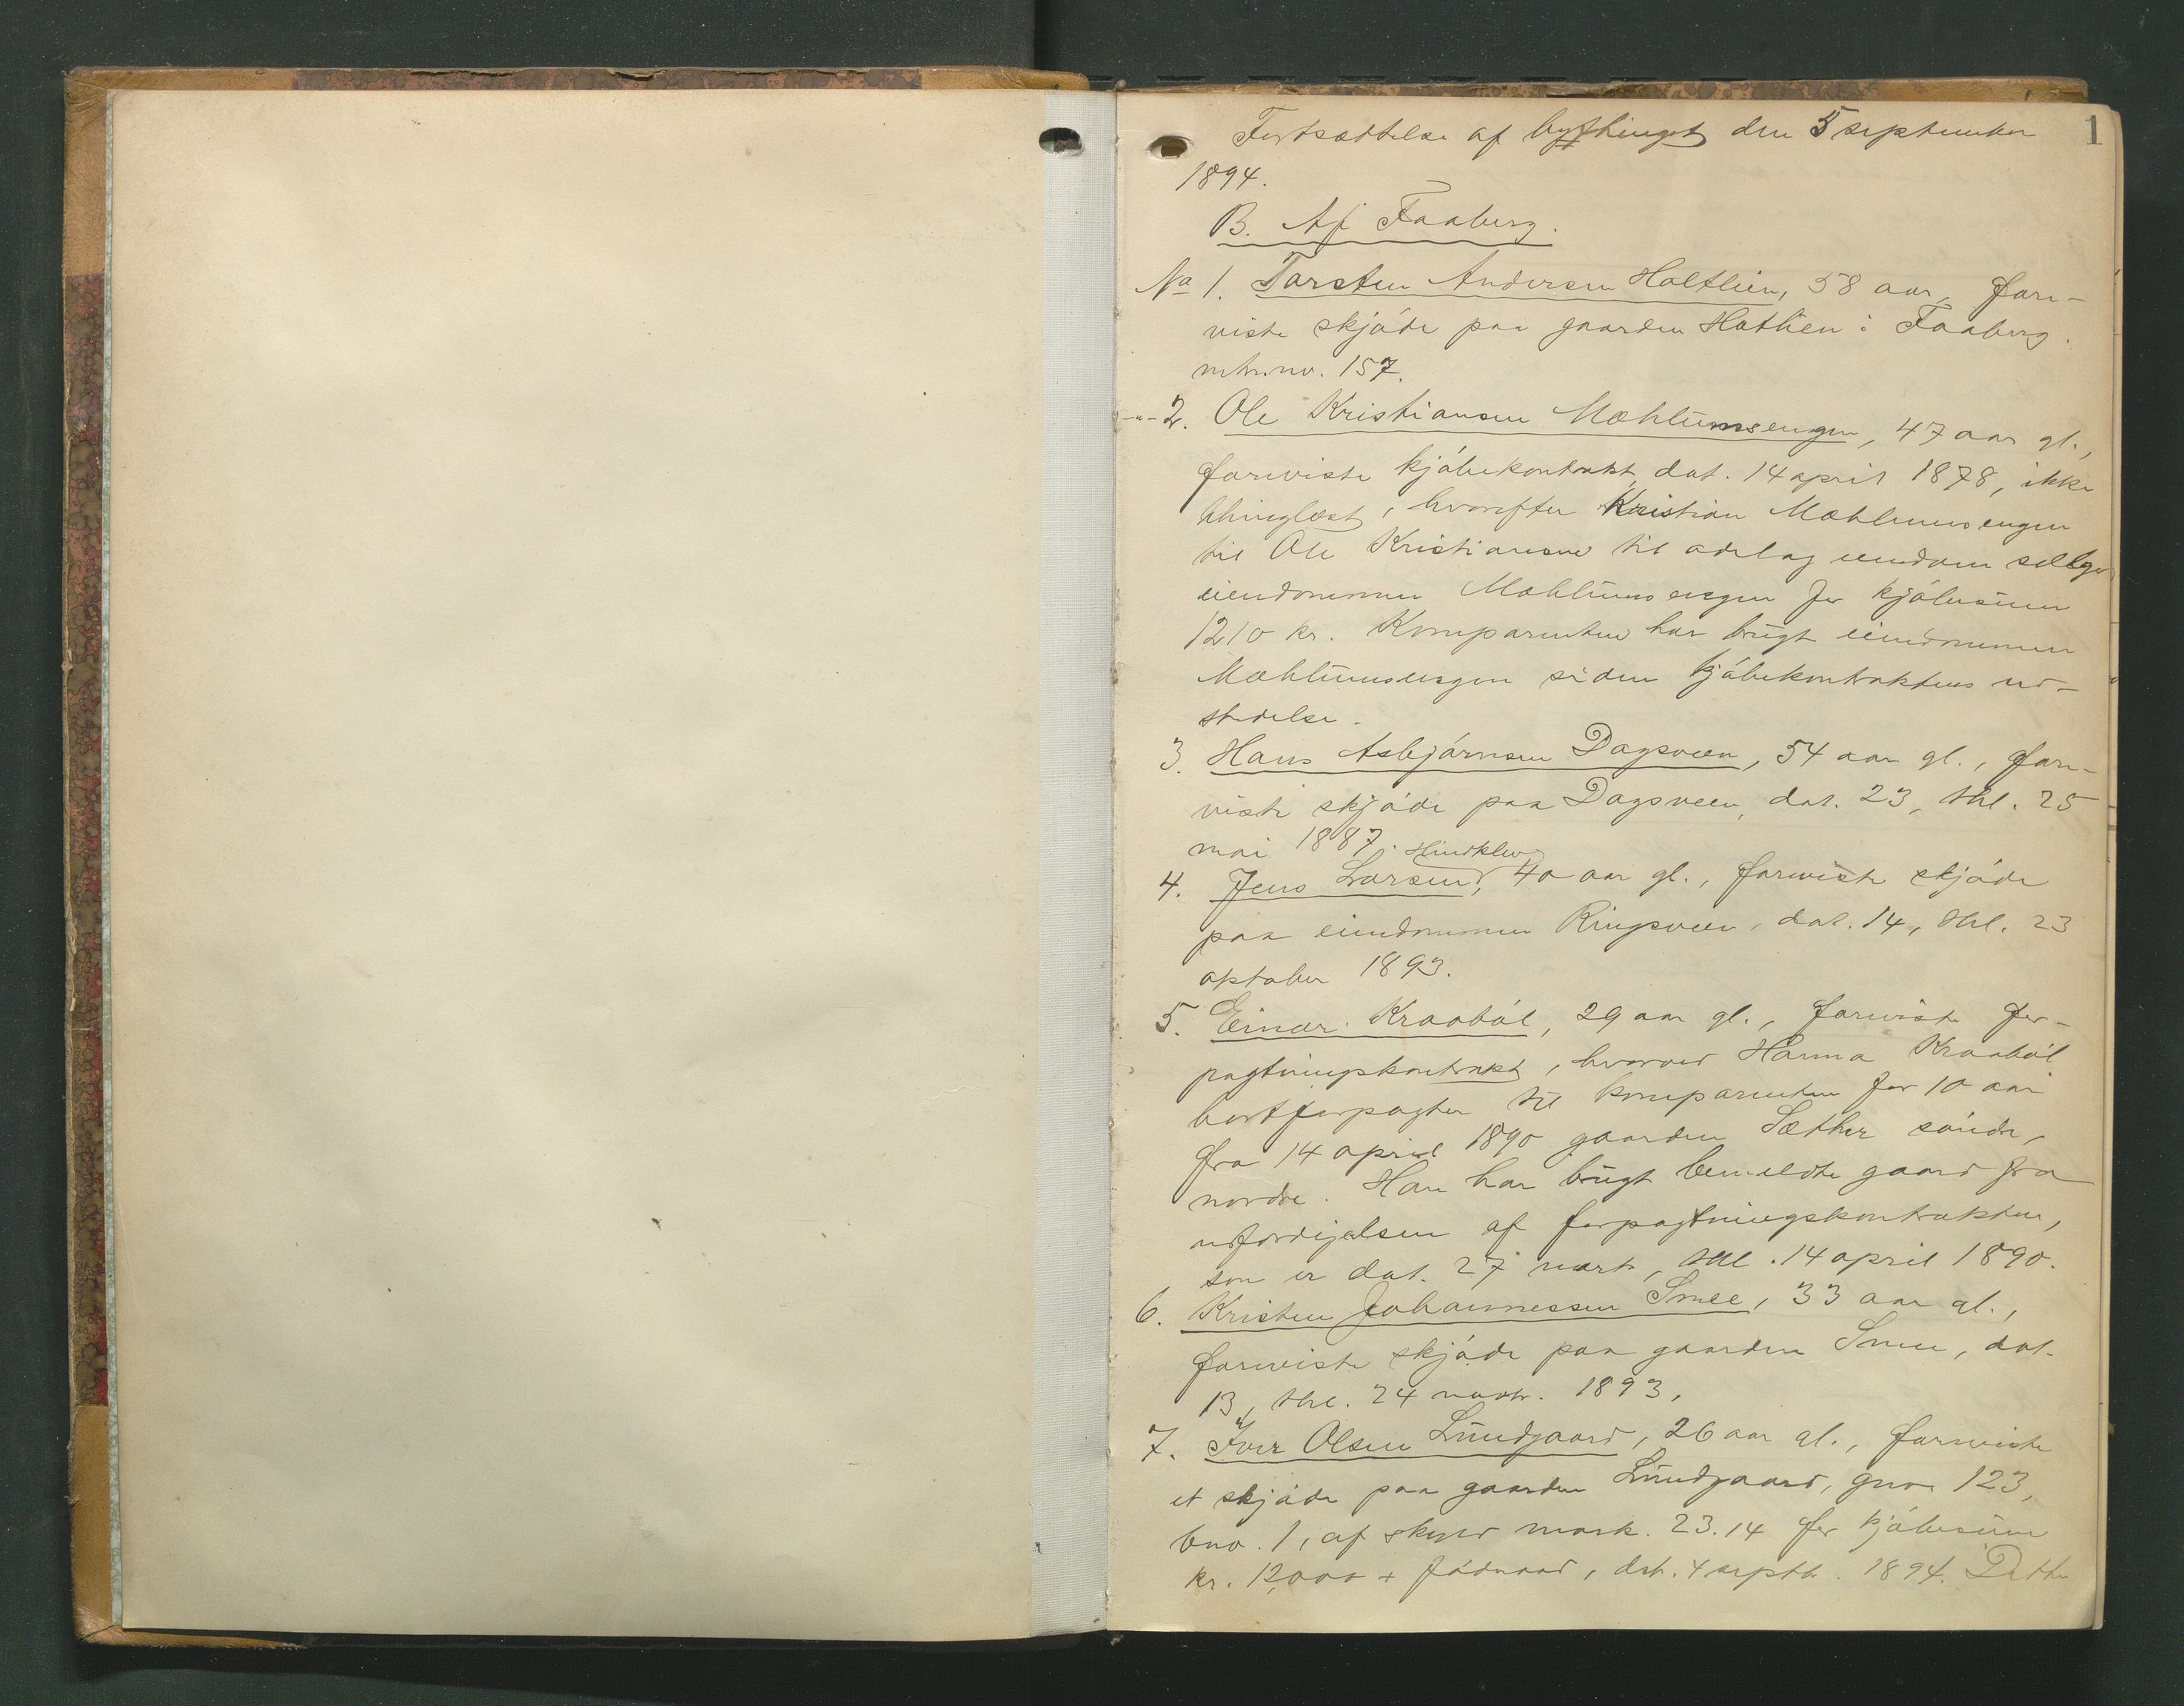 1
Fortsættelse af bygthinget den 5 september
1894.
B. Af Faaberg.
No 1. Torsten Andersen Holtlien, 58 aar, fore-
viste skjøde paa gaarden Holtlien i Faaberg.
mtr.no. 157.
-"- 2. Ole Kristiansen Mæhlumsengen, 47 aar gl.,
foreviste kjøbekontrakt, dat. 14 april 1878, ikke
thinglæst, hvorefter Kristian Mæhlumsengen
til Ole Kristiansen til odel og eiendom sælger
eiendommen Mæhlumsengen for kjøbesum
1210 kr. Komparenten har brugt eiendommen
Mæhlumsengen siden kjøbekontraktens ud-
stedelse.
3. Hans Asbjørnsen Dagsveen, 54 aar gl., fore-
viste skjøde paa Dagsveen, dat. 23, thl. 25
mai 1887. Hindklev
4. Jens Larsen, 40 aar gl., foreviste skjøde
paa eiendommen Ringsveen, dat. 14, thl. 23
oktober 1893.
5. Einar Kraabøl, 29 aar gl., foreviste for-
pagtningskontrakt, hvorved Hanna Kraabøl
bortforpagter til komparenten for 10 aar
fra 14 april 1890 gaarden Sæther søndre,
nordre. Han har brugt bemeldte gaard fra
udfærdigelsen af forpagtningskontrakten,
som er dat. 27 marts, thl. 14 april 1890.
6. Kristen Johannessen Smee, 33 aar gl.,
foreviste skjøde paa gaarden Smee, dat.
13, thl. 24 novbr. 1893.
7. Iver Olsen Lundgaard, 26 aar gl., foreviste
et skjøde paa gaarden Lundgaard, gno. 123,
bno. 1, af skyld mark. 23.14 for kjøbesum
kr. 12,000 + fødraad, dat. 4 septb. 1894. Dette